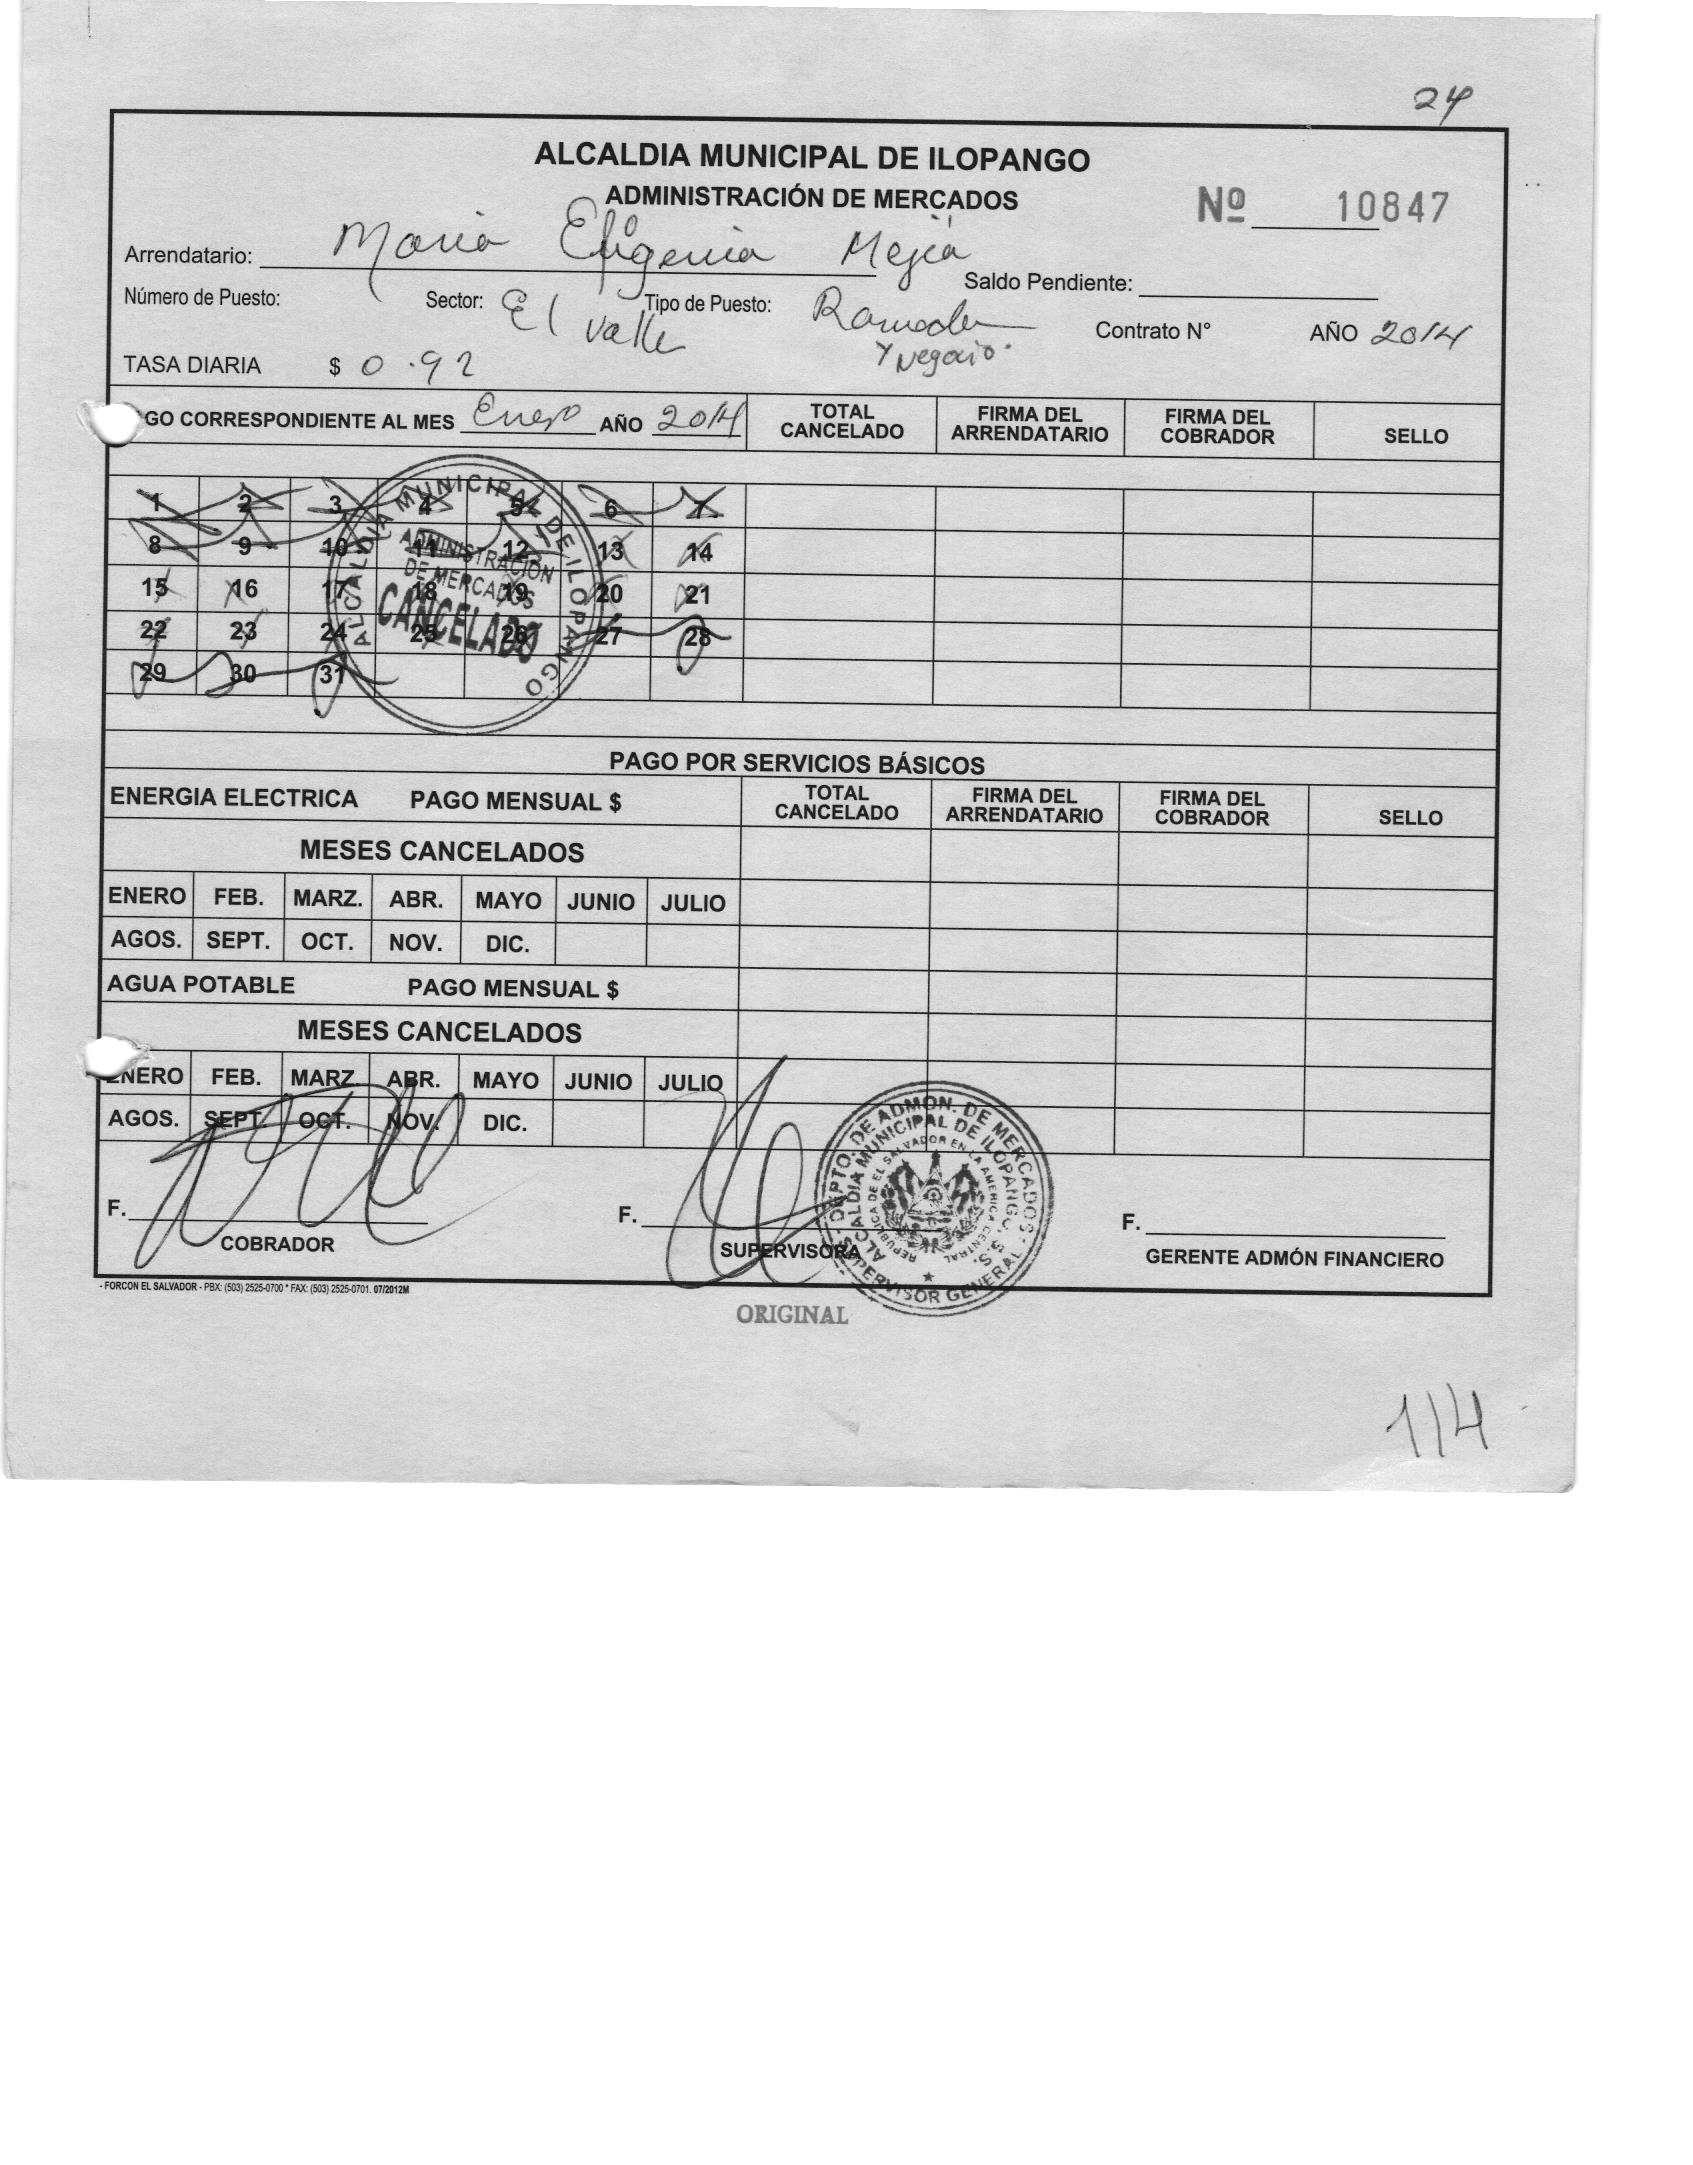 24
ALCALDIA MUNICIPAL DE ILOPANGO
ADMINISTRACIÓN DE MERCADOS
Nº 10847
Arrendatario: Maria Efigenia Mejia Saldo Pendiente:
Número de Puesto: Sector: El Valle Tipo de Puesto: Ramada y Negocio. Contrato N° AÑO 2014
TASA DIARIA $ 0.92
GO CORRESPONDIENTE AL MES Enero AÑO 2014 TOTAL CANCELADO FIRMA DEL ARRENDATARIO FIRMA DEL COBRADOR SELLO
1 2 3 4 5 6 7
8 9 10 11 12 13 14
15 16 17 18 19 20 21
22 23 24 25 26 27 28
29 30 31
ALCALDIA MUNICIPAL DE ILOPANGO
ADMINISTRACION
DE MERCADOS
CANCELADO
PAGO POR SERVICIOS BÁSICOS
ENERGIA ELECTRICA PAGO MENSUAL $ TOTAL CANCELADO FIRMA DEL ARRENDATARIO FIRMA DEL COBRADOR SELLO
MESES CANCELADOS
ENERO FEB. MARZ. ABR. MAYO JUNIO JULIO
AGOS. SEPT. OCT. NOV. DIC.
AGUA POTABLE PAGO MENSUAL $
MESES CANCELADOS
ENERO FEB. MARZ. ABR. MAYO JUNIO JULIO
AGOS. SEPT. OCT. NOV. DIC.
DEPTO. DE ADMON. DE MERCADOS
ALCALDIA MUNICIPAL DE ILOPANGO, S.S.
REPUBLICA DE EL SALVADOR EN LA AMERICA CENTRAL
SUPERVISOR GENERAL
F. F. F.
COBRADOR SUPERVISORA GERENTE ADMÓN FINANCIERO
- FORCON EL SALVADOR - PBX: (503) 2525-0700 * FAX: (503) 2525-0701. 07/2012M
ORIGINAL
114